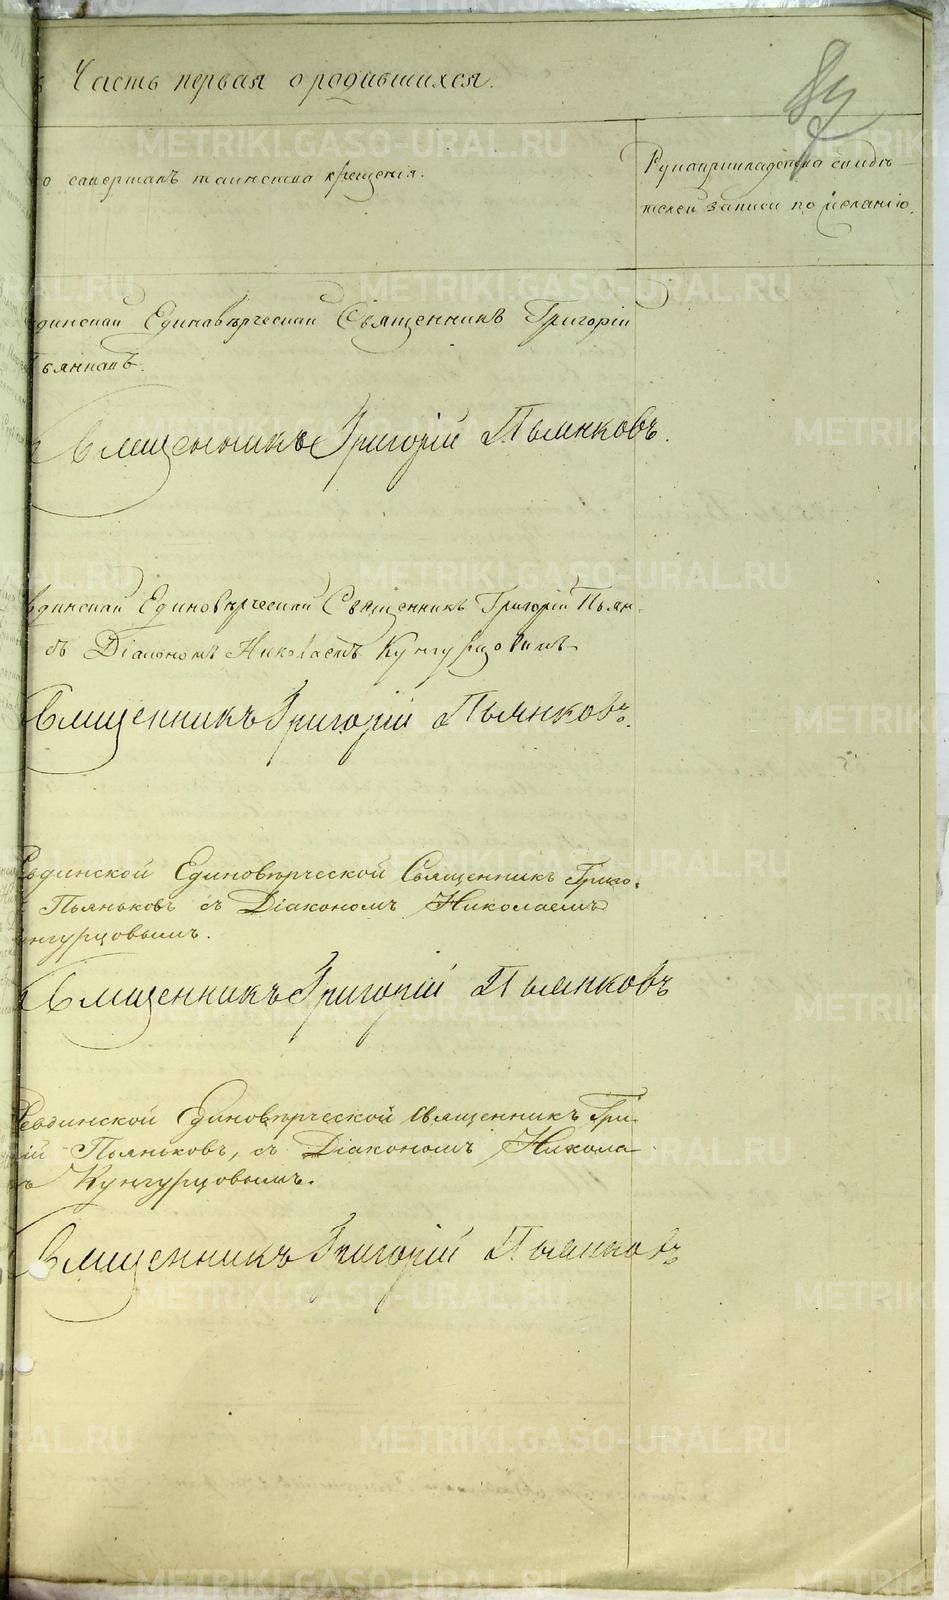 Часть первая о родившихся.
87
Кто совершалъ таинство крещенія.
Рукоприкладство свидѣ-
телей записи по желанію.
Ревдинскай Единавѣрческай Священникъ Григорій
Пьянкавъ.
Священникъ Григорій Пьянковъ.
Ревдинскай Единовѣрческай Священникъ Григорій Пьян-
съ Діакономъ Николаемъ Кунгурцовымъ
Священникъ Григорій Пьянковъ.
Ревдинской Единовѣрческой Священникъ Григо-
Пьяньковъ съ Діакономъ Николаемъ
Кунгурцовымъ.
Священникъ Григорій Пьянковъ
Ревдинской Единовѣрческой Священникъ Гри-
рій Пьяньковъ, съ Діакономъ Никола
Кунгурцовымъ.
Священникъ Григорій Пьянковъ
METRIKI.GASO-URAL.RU